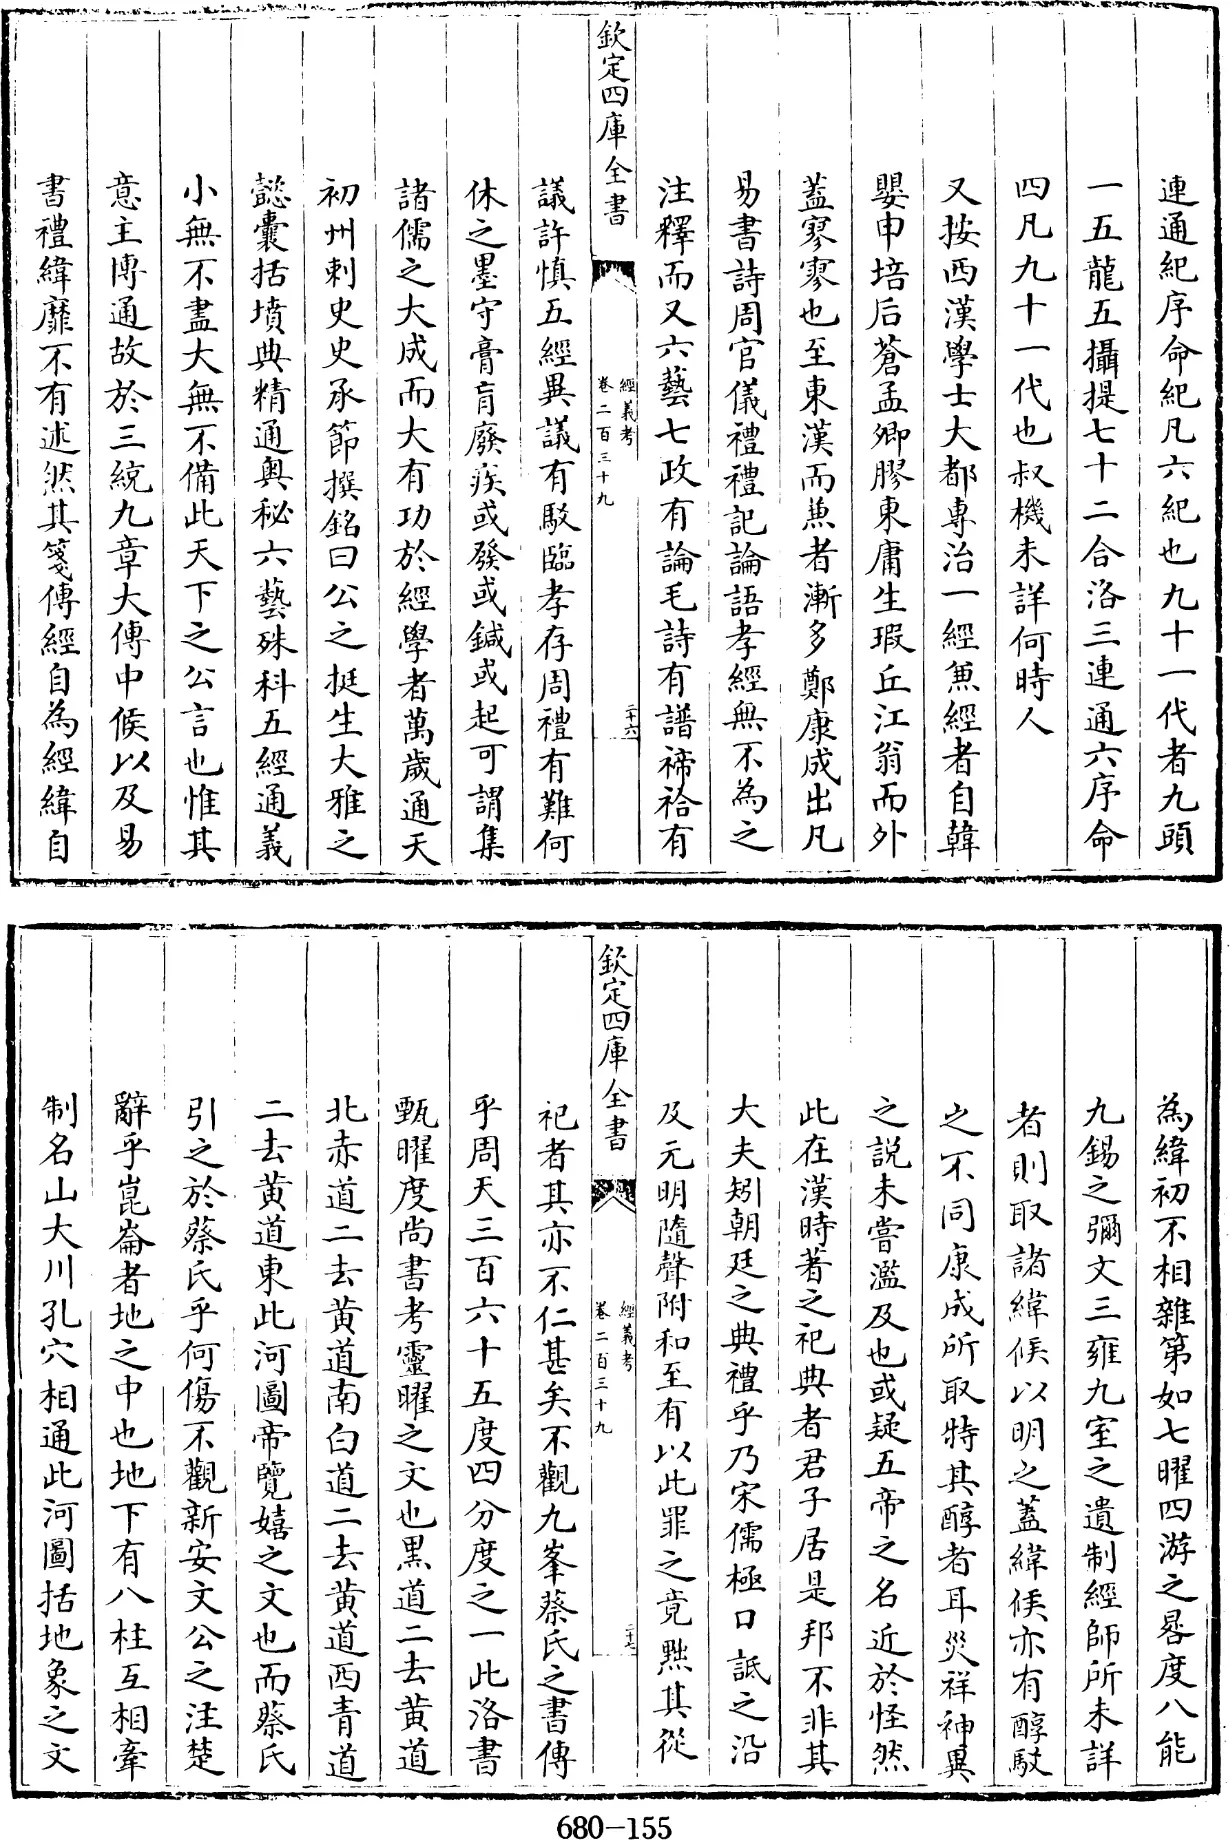 連通紀序命紀凡六紀也九十一代者九頭
一五龍五攝提七十二合洛三連通六序命
四凡九十一代也叔機未詳何時人
又按西漢學士大都專治一經兼經者自韓
嬰申培后蒼孟卿膠東庸生瑕丘江翁而外
蓋寥寥也至東漢而兼者漸多鄭康成出凡
易書詩周官儀禮禮記論語孝經無不為之
注釋而又六藝七政有論毛詩有譜禘祫有
欽定四庫全書
經義考
卷二百三十九
二十六
議許慎五經異議有駁臨孝存周禮有難何
休之墨守膏肓廢疾或發或鍼或起可謂集
諸儒之大成而大有功於經學者萬歲通天
初州刺史史承節撰銘曰公之挺生大雅之
懿囊括墳典精通奧秘六藝殊科五經通義
小無不盡大無不備此天下之公言也惟其
意主博通故於三統九章大傳中候以及易
書禮緯靡不有述然其箋傳經自為經緯自
為緯初不相雜第如七曜四游之晷度八能
九錫之彌文三雍九室之遺制經師所未詳
者則取諸緯候以明之蓋緯候亦有醇駁
之不同康成所取特其醇者耳災祥神異
之說未嘗濫及也或疑五帝之名近於怪然
此在漢時著之祀典者君子居是邦不非其
大夫矧朝廷之典禮乎乃宋儒極口詆之沿
及元明隨聲附和至有以此罪之竟黜其從
欽定四庫全書
經義考
卷二百三十九
二十七
祀者其亦不仁甚矣不觀九峯蔡氏之書傳
乎周天三百六十五度四分度之一此洛書
甄曜度尚書考靈曜之文也黑道二去黄道
北赤道二去黄道南白道二去黄道西青道
二去黄道東此河圖帝覽嬉之文也而蔡氏
引之於蔡氏乎何傷不觀新安文公之注楚
辭乎崑崙者地之中也地下有八柱互相牽
制名山大川孔穴相通此河圖括地象之文
680-155